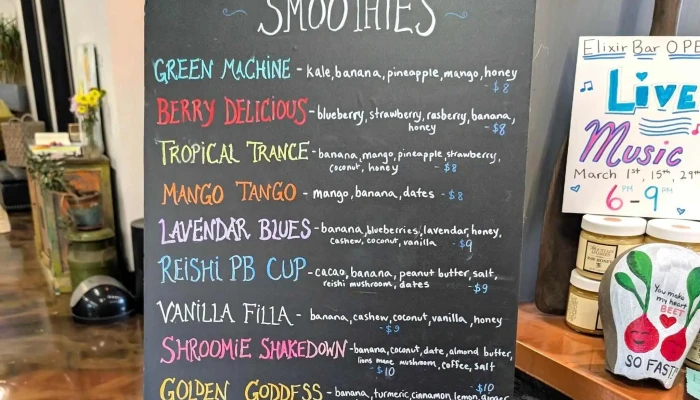 SMOOTHIES
GREEN MACHINE - kale, banana, pineapple, mango, honey
- $8
BERRY DELICIOUS - blueberry, strawberry, rasberry, banana,
honey - $8
TROPICAL TRANCE - banana, mango, pineapple, strawberry,
coconut, honey - $8
MANGO TANGO - mango, banana, dates - $8
LAVENDAR BLUES - banana, blueberries, lavendar, honey,
cashew, coconut, vanilla - $9
REISHI PB CUP - cacao, banana, peanut butter, salt,
reishi mushroom, dates - $9
VANILLA FILLA - banana, cashew, coconut, vanilla, honey
- $9
SHROOMIE SHAKEDOWN - banana, coconut, date, almond butter,
lions mane mushroom, coffee, salt
- $10
- $10
GOLDEN GODDESS - banana, turmeric, cinnamon, lemon, ginger
Elixir Bar OPE
Live
Music
March 1st, 15th, 29th
6PM - 9PM
You make
my heart
BEET
SO FAST!